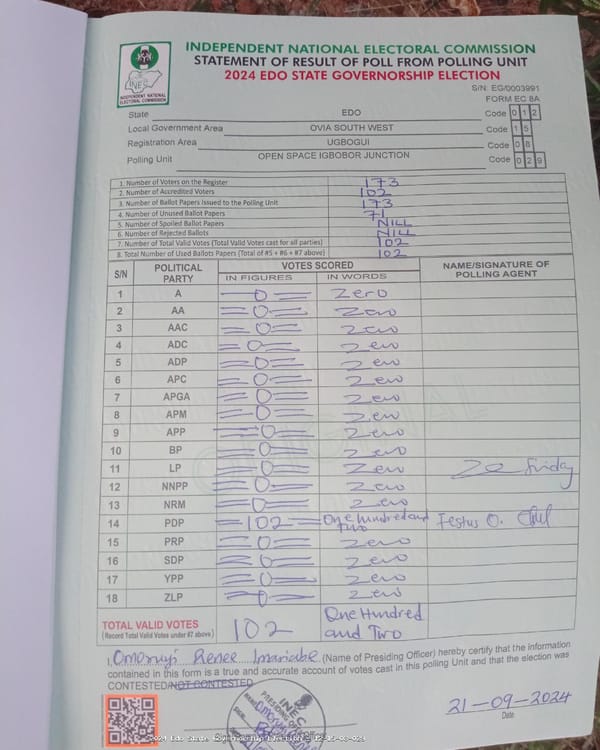 INEC
INDEPENDENT NATIONAL ELECTORAL COMMISSION
INDEPENDENT NATIONAL ELECTORAL COMMISSION
STATEMENT OF RESULT OF POLL FROM POLLING UNIT
2024 EDO STATE GOVERNORSHIP ELECTION
S/N: EG/0003991
FORM EC 8A
State EDO Code 0 1 2
Local Government Area OVIA SOUTH WEST Code 1 5
Registration Area UGBOGUI Code 0 8
Polling Unit OPEN SPACE IGBOBOR JUNCTION Code 0 2 9
1. Number of Voters on the Register 173
2. Number of Accredited Voters 102
3. Number of Ballot Papers Issued to the Polling Unit 173
4. Number of Unused Ballot Papers 71
5. Number of Spoiled Ballot Papers NILL
6. Number of Rejected Ballots NILL
7. Number of Total Valid Votes (Total Valid Votes cast for all parties) 102
8. Total Number of Used Ballots Papers (Total of #5 + #6 + #7 above) 102
S/N POLITICAL PARTY VOTES SCORED NAME/SIGNATURE OF POLLING AGENT
IN FIGURES IN WORDS
1 A =0= Zero
2 AA =0= Zero
3 AAC =0= Zero
4 ADC =0= Zero
5 ADP =0= Zero
6 APC =0= Zero
7 APGA =0= Zero
8 APM =0= Zero
9 APP =0= Zero
10 BP =0= Zero
11 LP =0= Zero Friday
12 NNPP =0= Zero
13 NRM =0= Zero
14 PDP =102= One Hundred and Two Festus O.
15 PRP =0= Zero
16 SDP =0= Zero
17 YPP =0= Zero
18 ZLP =0= Zero
TOTAL VALID VOTES 102 One Hundred and Two
(Record Total Valid Votes under #7 above)
I, Omoruyi Renee Imariabe (Name of Presiding Officer) hereby certify that the information
contained in this form is a true and accurate account of votes cast in this polling Unit and that the election was
CONTESTED/NOT CONTESTED
INEC
21-09-2024
Date